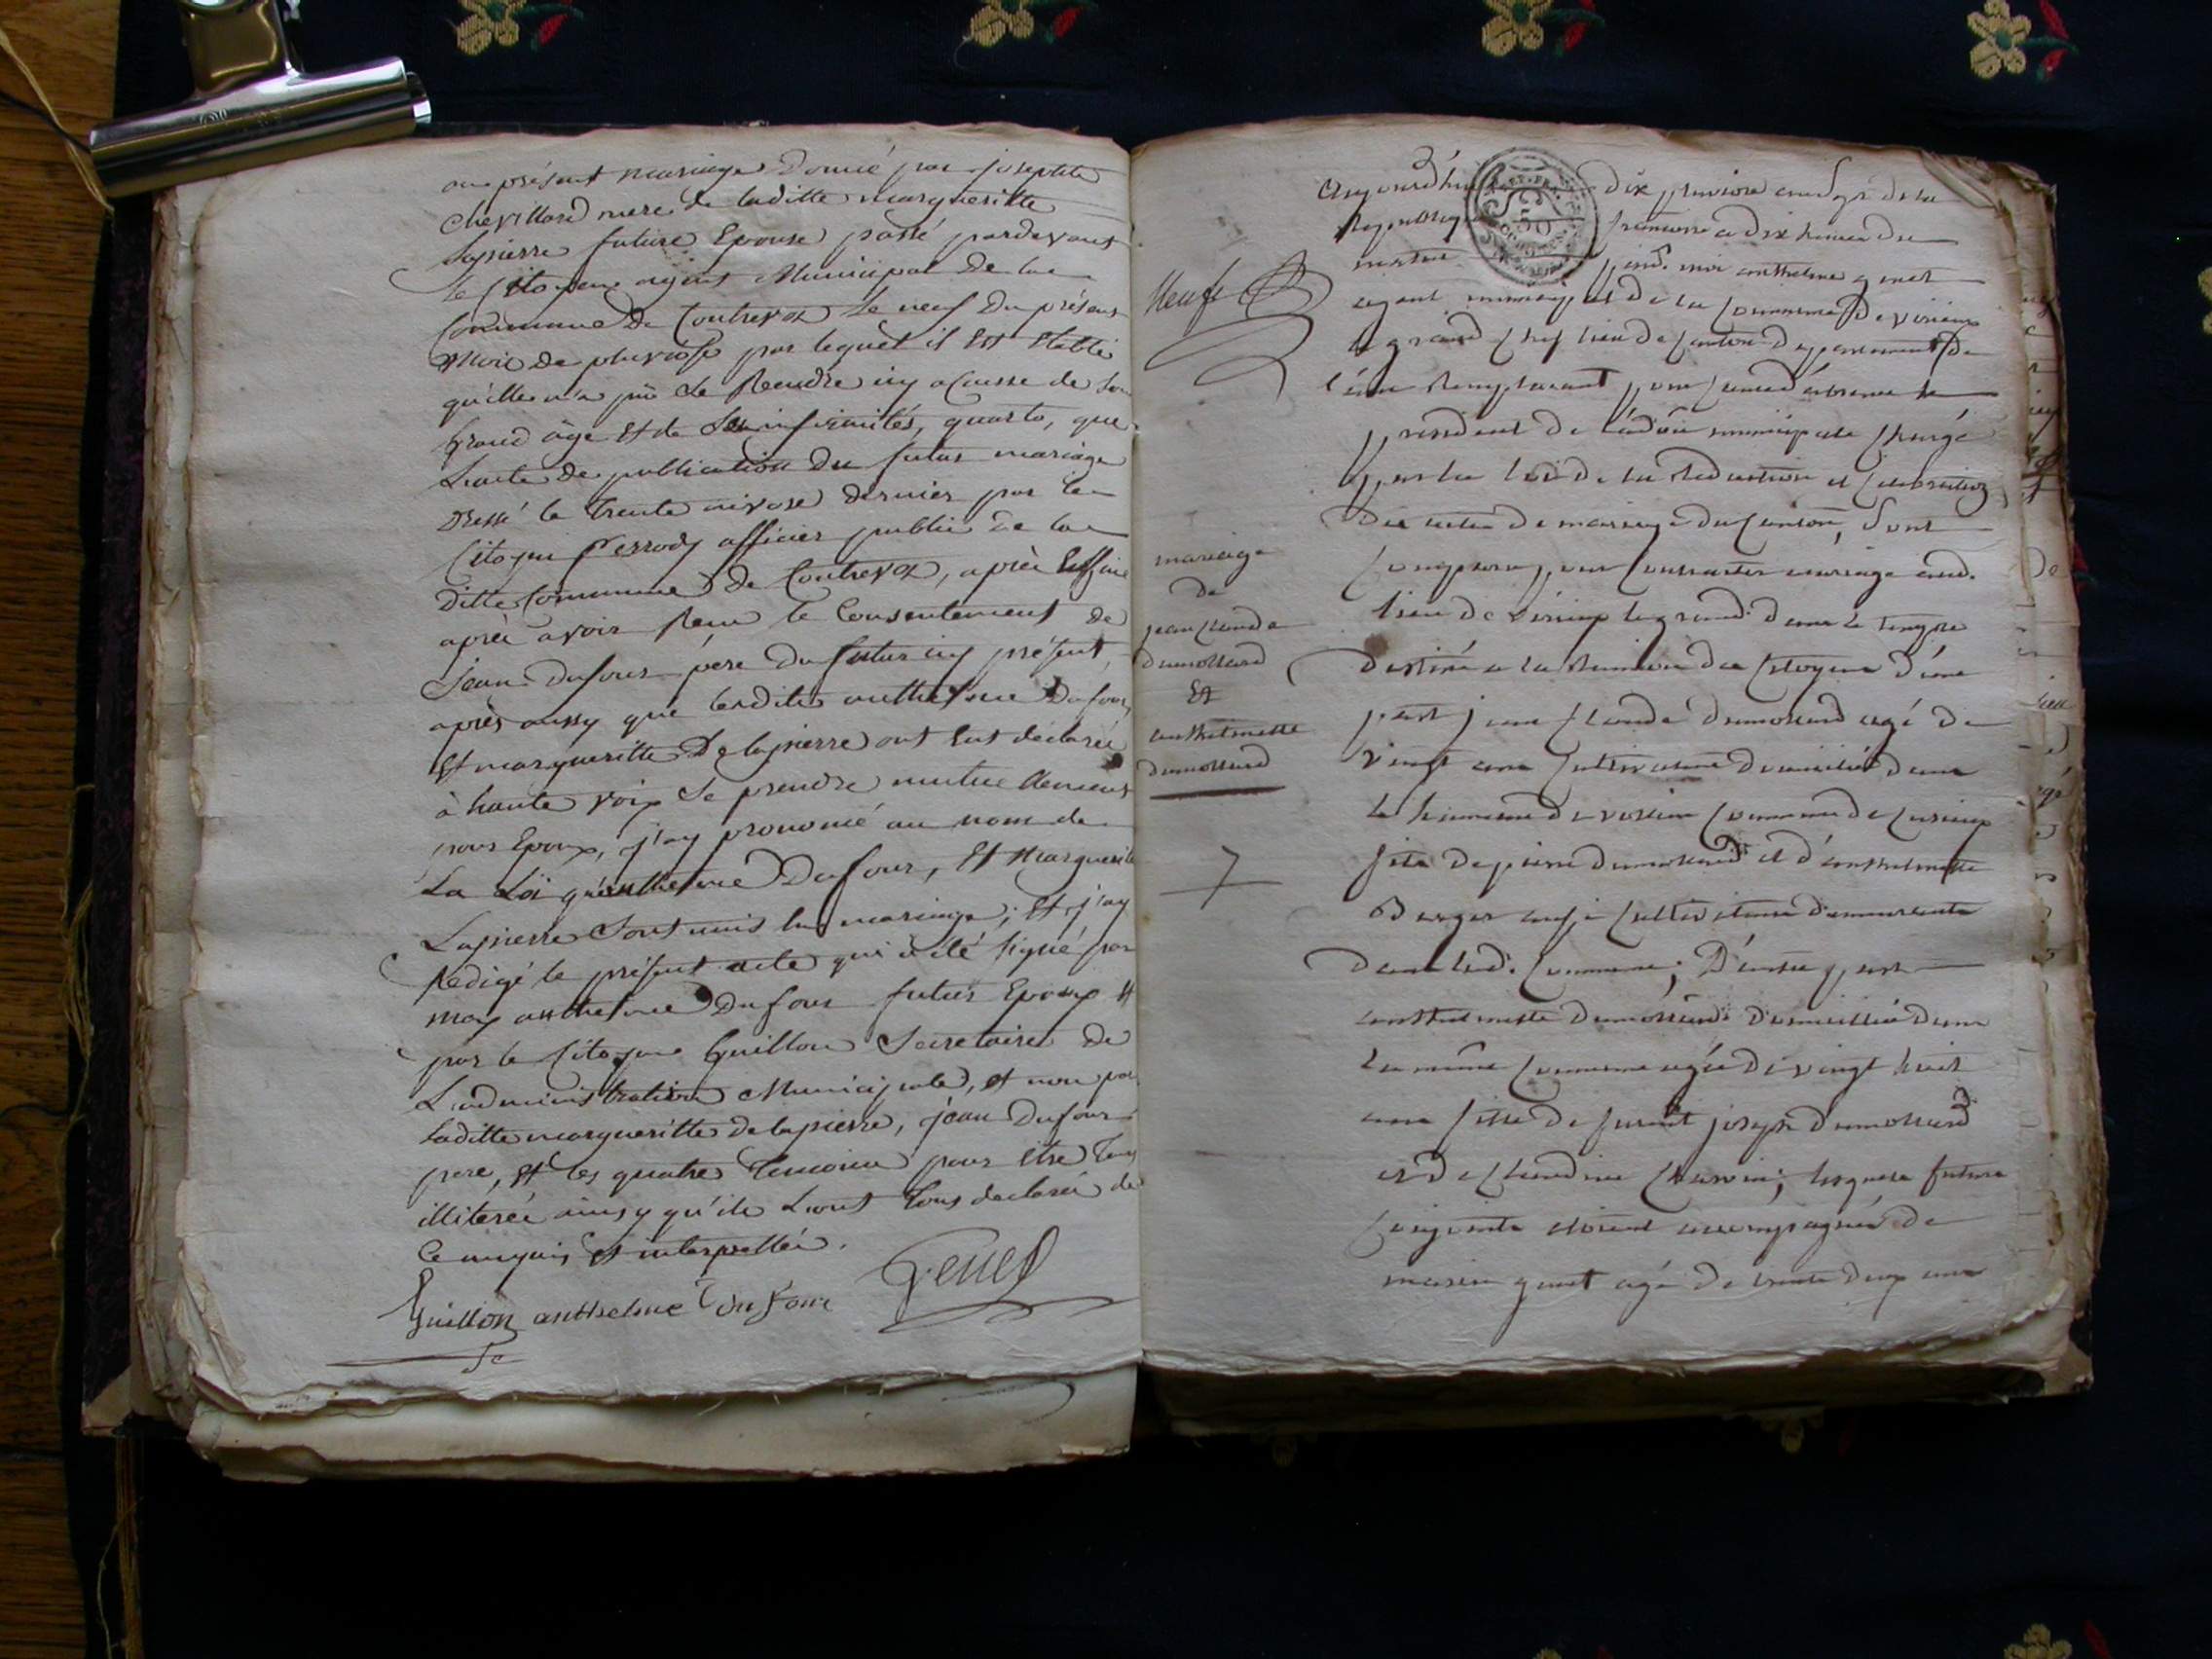 au présent mariage Donné par josephte
chevillard mere de laditte margueritte
lapierre future Epouse passé pardevant
le Citoyen agent Municipal De la
Commune De Contrevoz le neuf Du présent
Mois de pluviose par lequel il Est Etabli
qu'elle n'a pû se Rendre icy a Causse de Son
Grand âge Et de Ses infirmités, quarto, que
L'acte de publication Du futur mariage
Dressé le trente nivose dernier par le
Citoyen Perrody officier public De la
Ditte Commune De Contrevoz, après
après avoir Reçu le Consentement de
Jean Dufour père Du futur icy présent,
après aussy que lesdits anthelme Dufour
Et margueritte Delapierre ont Eut déclaré
à haute voix Se prendre mutuellement
pour Epoux, j'ay prononcé au nom de
La Loi qu'anthelme Dufour, Et Margueritte
Lapierre Sont unis En mariage; Et j'ay
Redigé le présent acte qui a été signé par
moy anthelme Dufour futur Epoux Et
par le Citoyen Guillon Secretaire De
L'administration Municipale, et non par
laditte margueritte delapierre, jean Dufour
pere, Et les quatre temoins pour Etre tous
illiterés ainsy qu'ils L'ont tous declaré de
Ce enquis Et interpellés.
Genet
Guillon anthelme Dufour
Se
Neuf
mariage
de
jean Claude
dumollard
Et
anthelmette
dumollard
7
Aujourd'hui dix pluviose an Sept de la
Republique francoise a dix heures du
matin pard. moi anthelme genet
agent municipal de la Commune de virieux
le grand Chef lieu de Canton departement de
l'ain Remplacant pour Cause d'absence le
president de l'adon municipale Chargé
par la loi de la Redaction et Celebration
des actes de mariage du Canton, Sont
Comparus pour Contracter mariage aud.
lieu de virieux le grand dans le temple
destiné a la Reunion des Citoyens d'une
part jean Claude dumollard agé de
vingt ans Cultivateur domicilié dans
le hameau de vollien Commune de
fils de pierre dumollard et d'anthelmette
Berger aussi Cultivateurs demeurants
dans lad. Commune; D'autre part
anthelmette dumollard domiciliée dans
la même Commune agée de vingt huit
ans fille de furent joseph dumollard
et de Claudine Charvin; lesquels futurs
Conjoints etoient accompagnés de
marin genet agé de trente deux ans